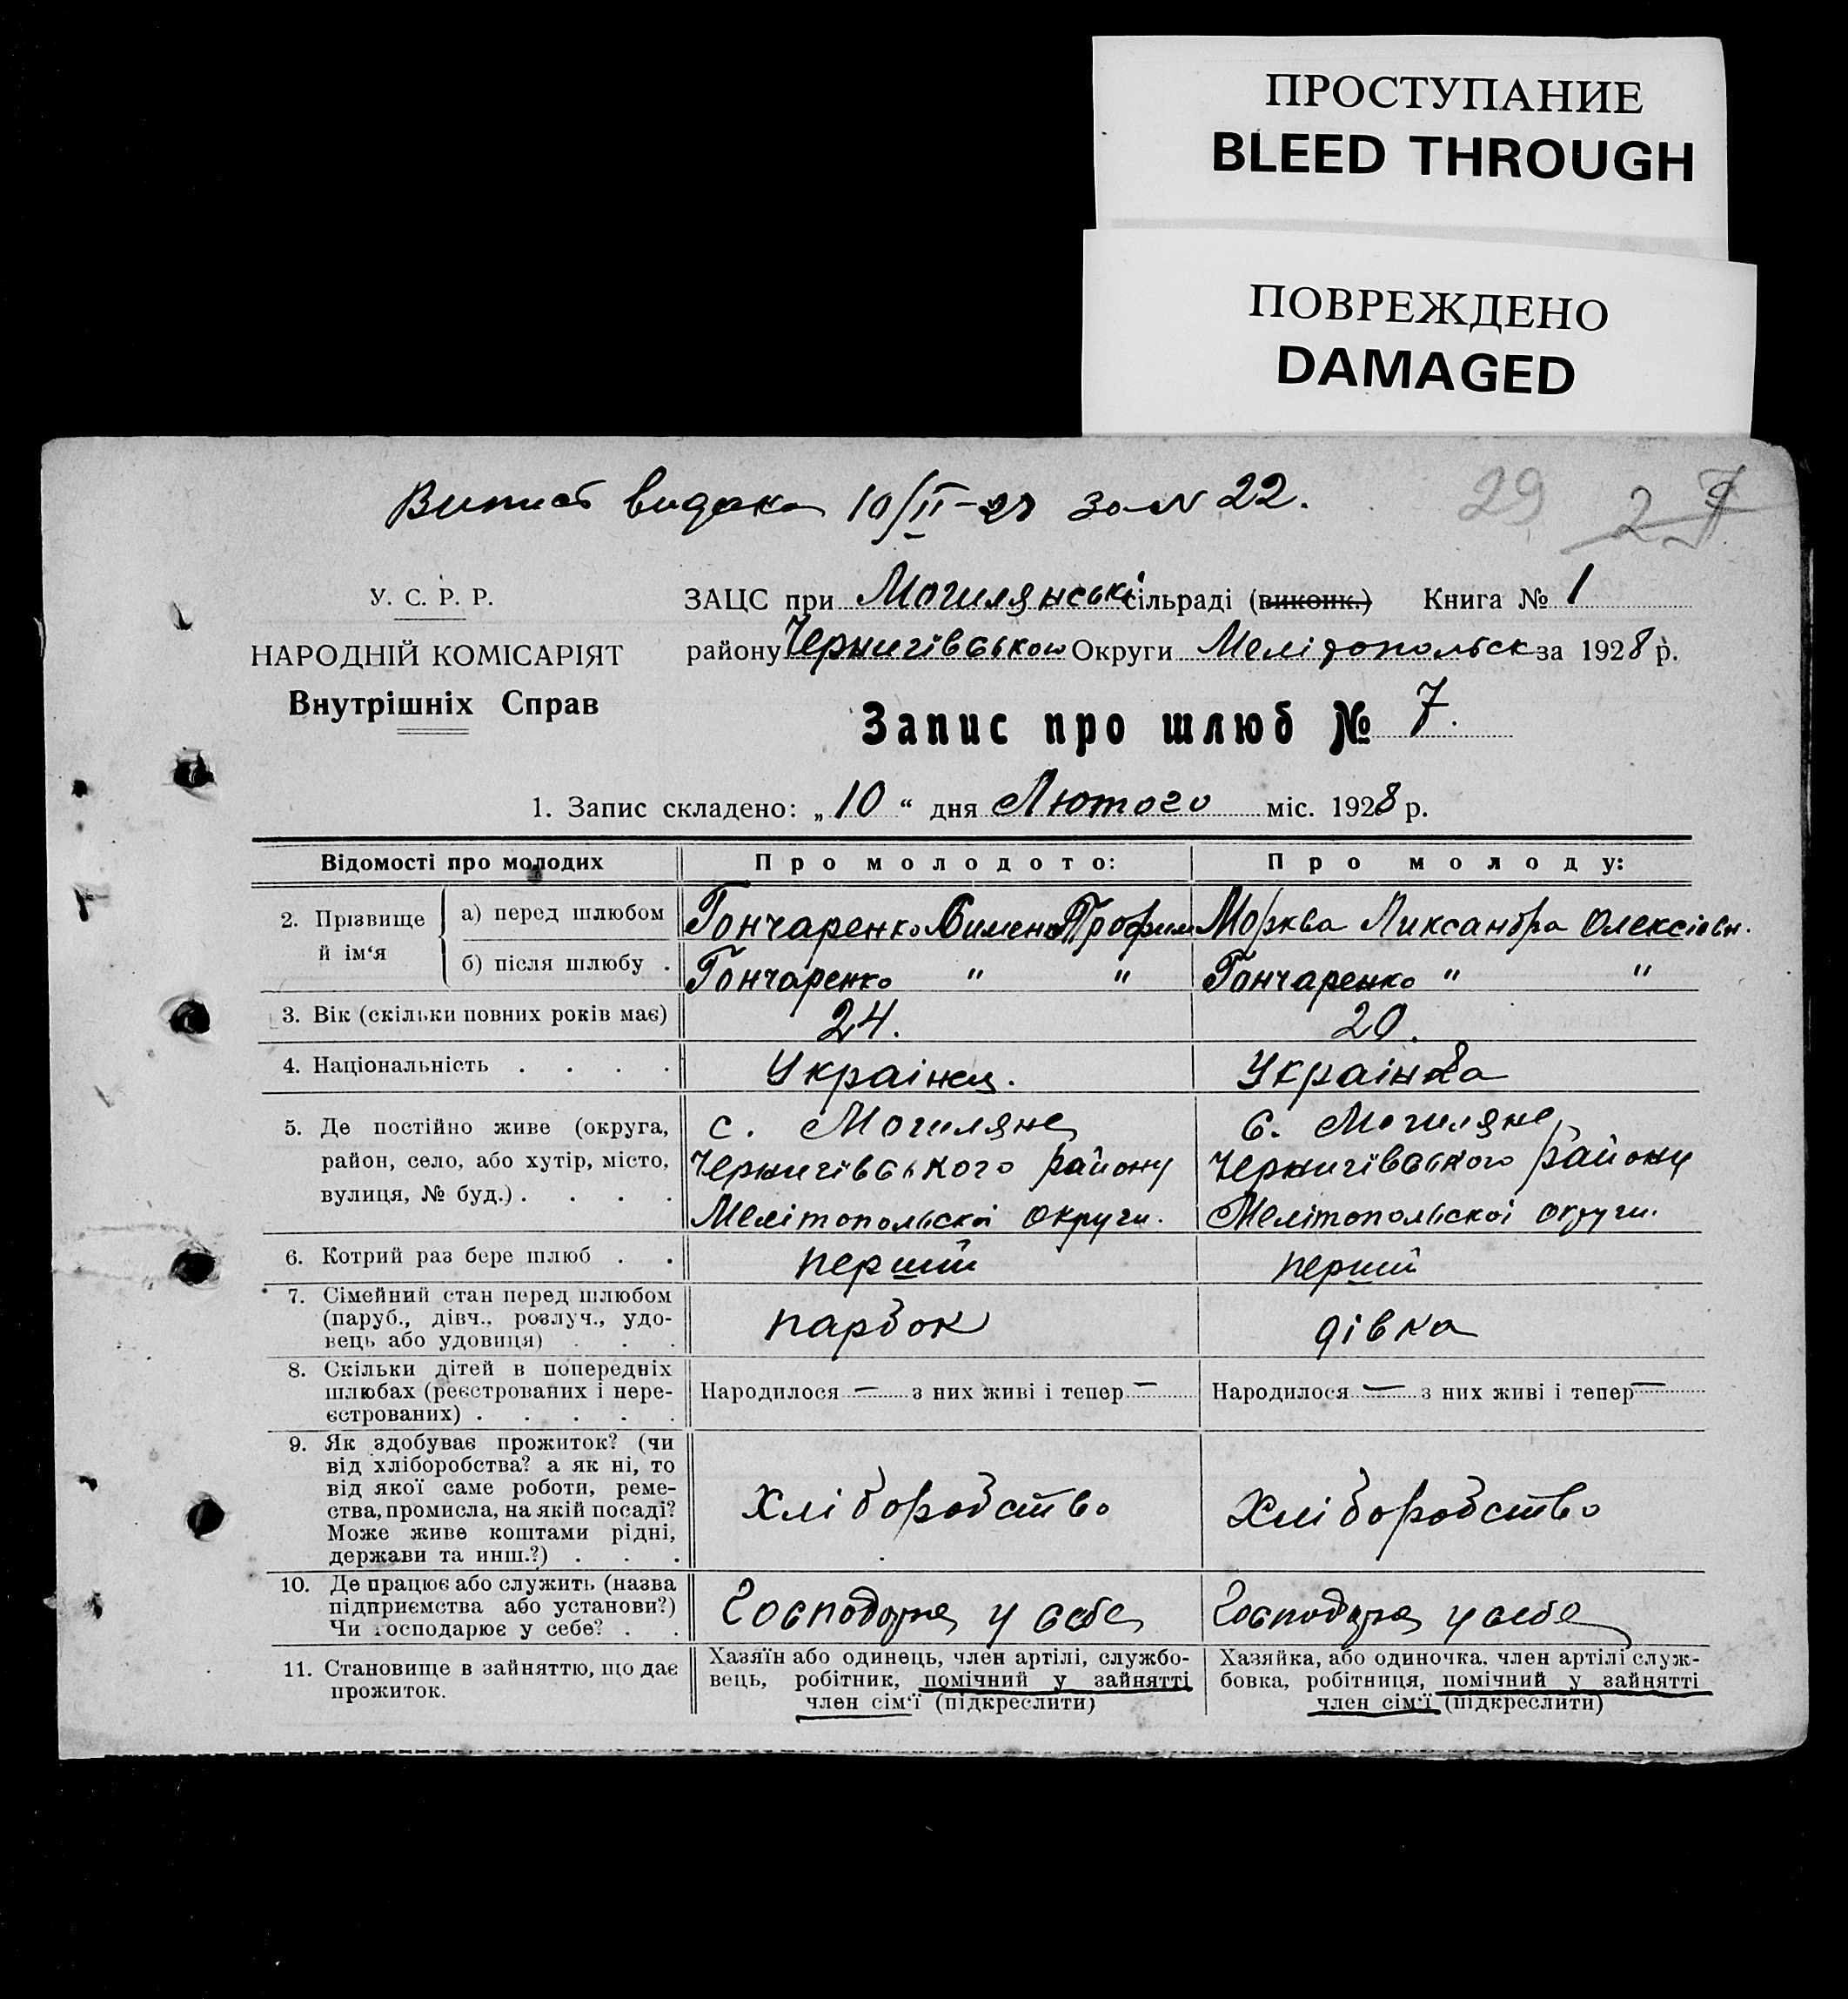 ПРОСТУПАНИЕ
BLEED THROUGH
ПОВРЕЖДЕНО
DAMAGED
29 27
Випись видана 10/II-28 за N 22.
У. С. Р. Р.
НАРОДНІЙ КОМІСАРІЯТ
Внутрішніх Справ
ЗАЦС при Могилянські сільраді (виконк.) Книга № 1
району Чернигівською Округи Мелітопольск за 1928 р.
Запис про шлюб № 7.
1. Запис складено: „10“ дня Лютого міс. 1928 р.
Відомості про молодих
Про молодого:
Про молоду:
2. Прізвище й ім‘я
а) перед шлюбом
Гончаренко Симено Трофим
Морква Ликсандра Олексіевн.
б) після шлюбу .
Гончаренко " "
Гончаренко " "
3. Вік (скільки повних років має)
24.
20.
4. Національність . . . .
Украінец.
Украінка
5. Де постійно живе (округа,
район, село, або хутір, місто,
вулиця, № буд.) . . . .
с. Могиляне
Чернигівського району
Мелітопольскоі округи.
с. Могиляне
Чернигівського району
Мелітопольскоі округи.
6. Котрий раз бере шлюб . .
перший
перший
7. Сімейний стан перед шлюбом
(паруб., дівч., розлуч., удо-
вець або удовиця) . . .
парбок
дівка
8. Скільки дітей в попередніх
шлюбах (реєстрованих і нере-
єстрованих) . . . . .
Народилося — з них живі і тепер —
Народилося — з них живі і тепер —
9. Як здобуває прожиток? (чи
від хліборобства? а як ні, то
від якої саме роботи, реме-
ства, промисла, на якій посаді?
Може живе коштами рідні,
держави та инш.?) . . .
Хліборобство
Хліборобство
10. Де працює або служить (назва
підприємства або установи?)
Чи господарює у себе? . .
Господаре у себе
Господаре у себе
11. Становище в зайняттю, що дає
прожиток.
Хазяїн або одинець, член артілі, службо-
вець, робітник, помічний у зайнятті
член сім‘ї (підкреслити)
Хазяйка, або одиночка, член артілі служ-
бовка, робітниця, помічний у зайнятті
член сім‘ї (підкреслити)